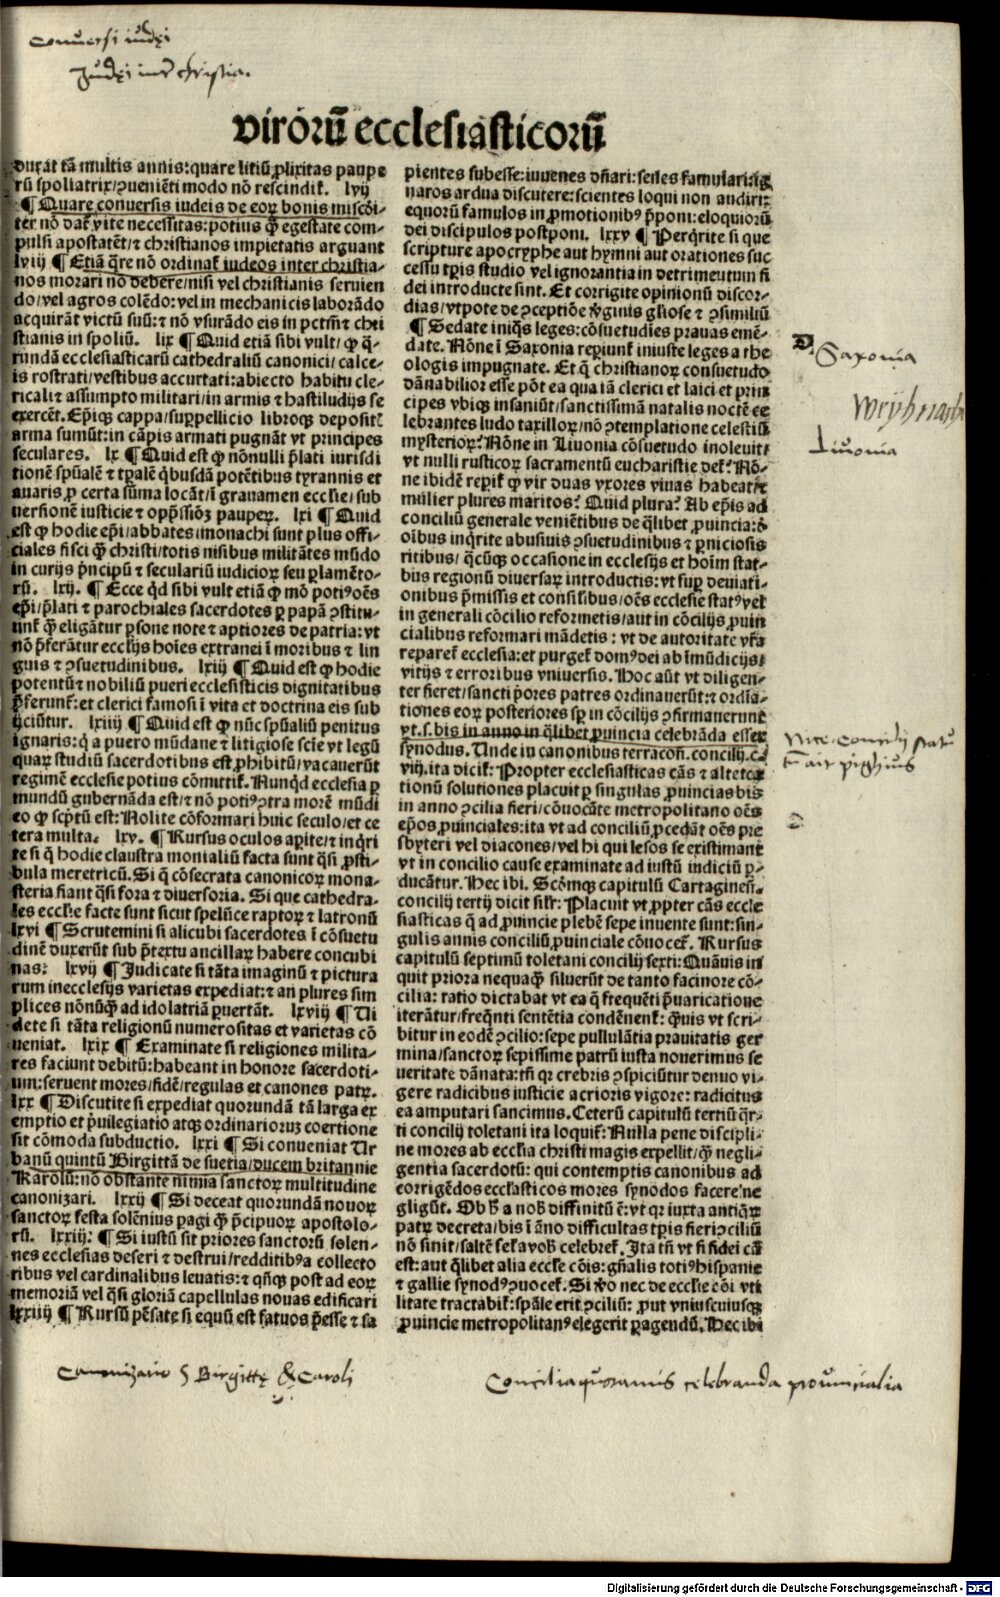 Conuersi iudęi
Judęi inter christia.
virorū ecclesiasticorū
durat tā multis annis: quare litiū ꝓlixitas paupe
rū spoliatrix/ ꝯueniēti modo nō rescindit᷑. lvij
¶ Quare conuersis iudeis de eoꝝ bonis miscōi⸗
ter nō dat᷑ vite necessitas: potius ꝙ̄ egestate com⸗
pulsi apostatēt/ ⁊ christianos impietatis arguant
lviij ¶ Etiā q̄re nō ordinat᷑ iudeos inter christia⸗
nos morari nō debere/ nisi vel christianis seruien
do/ vel agros colēdo: vel in mechanicis laborādo
acquirāt victū suū: ⁊ nō vsurādo eis in pctm̄ ⁊ chri
stianis in spoliū. lix ¶ Quid etiā sibi vult/ ꝙ q̄⸗
rundā ecclesiasticarū cathedraliū canonici/ calce⸗
is rostrati/ vestibus accurtati: abiecto habitu cle⸗
ricali: ⁊ assumpto militari/ in armis ⁊ hastiludijs se
exercēt. Ep̄iqꝫ cappa/ suꝑpellicio libroqꝫ deposit᷑
arma sumūt: in cāpis armati pugnāt vt principes
seculares. lx ¶ Quid est ꝙ nōnulli p̄lati iurisdi
tionē spūalē ⁊ tꝑalē q̄busdā potētibus tyrannis et
auaris ꝓ certa sūma locāt/ ī grauamen ecclie/ sub
uersionē iusticie ⁊ opp̄ssiōꝫ pauperꝝ. lxi ¶ Quid
est ꝙ hodie ep̄i/ abbates/ monachi sunt plus offi⸗
ciales fisci ꝙ̄ christi/ totis nisibus militātes mūdo
in curijs p̄ncipū ⁊ seculariū iudicioꝝ seu ꝑlamēto⸗
rū. lxij. ¶ Ecce qd̄ sibi vult etiā ꝙ mō potiꝰ oēs
ep̄i/ p̄lati ⁊ parochiales sacerdotes ꝑ papā ꝯstitu⸗
unt᷑ ꝙ̄ eligāt̄ur ꝑsone note ⁊ aptiores de patria: vt
nō p̄ferāt̄ur ecclijs hoīes extranei ī moribus ⁊ lin
guis ⁊ ꝯsuetudinibus. lxiij ¶ Quid est ꝙ hodie
potentū ⁊ nobiliū pueri ecclesisticis dignitatibus
p̄ferunt᷑: et clerici famosi ī vita et doctrina eis sub
ijciūtur. lxiiij ¶ Quid est ꝙ nūc spūaliū penitus
ignaris: q̄ a puero mūdane ⁊ litigiose scie vt legū
quaꝝ studiū sacerdotibus est ꝓhibitū/ vacauerūt
regimē ecclesie potius cōmittit᷑. Nunqd̄ ecclesia ꝑ
mundū gubernāda est/ ⁊ nō potiꝰ ꝯtra morē mūdi
eo ꝙ scp̄tū est: Nolite cōformari huic seculo/ et ce
tera multa. lxv. ¶ Rursus oculos aꝑite/ ⁊ inq̄ri
te si q̄ hodie claustra monialiū facta sunt q̄si ꝓsti⸗
bula meretricū. Si q̄ cōsecrata canonicoꝝ mona⸗
steria fiant q̄si fora ⁊ diuersoria. Si que cathedra⸗
les ecclie facte sunt sicut spelūce raptoꝝ ⁊ latronū
lxvi ¶ Scrutemini si alicubi sacerdotes ī cōsuetu
dinē duxerūt sub p̄textu ancillaꝝ habere concubi
nas: lxvij ¶ Judicate si tāta imaginū ⁊ pictura
rum inecclesijs varietas expediat: ⁊ an plures sim
plices nōnūꝙ̄ ad idolatriā ꝑuertāt. lxviij ¶ Ui
dete si tāta religionū numerositas et varietas cō
ueniat. lxix ¶ Examinate si religiones milita⸗
res faciunt debitū: habeant in honore sacerdoti⸗
um: seruent mores/ fidē/ regulas et canones patꝝ.
lxx ¶ Discutite si expediat quorundā tā larga ex
emptio et p̄uilegiatio atqꝫ ordinarioruꝫ coertione
sit cōmoda subductio. lxxi ¶ Si conueniat Ur
banū quintū Birgittā de suetia/ ducem britannie
Karolū: nō obstante nimia sanctoꝝ multitudine
canonizari. lxxij ¶ Si deceat quorundā nouoꝝ
sanctoꝝ festa solēnius pagi ꝙ̄ p̄cipuoꝝ apostolo⸗
rū. lxxiij: ¶ Si iustū sit priores sanctorū solen⸗
nes ecclesias deseri ⁊ destrui/ redditibꝰ a collecto
ribus vel cardinalibus leuatis: ⁊ qn̄qꝫ post ad eoꝝ
memoriā vel q̄si gloriā capellulas nouas edificari
lxxiiij ¶ Rursū pēsate si equū est fatuos p̄esse ⁊ sa
pientes subesse: iuuenes dn̄ari: senes famulari: ig
naros ardua discutere: scientes loqui non audiri:
equorū famulos in ꝓmotionibꝰ p̄poni: eloquiorū
dei discipulos postponi. lxxv ¶ Perq̄rite si que
scripture apocryphe aut hymni aut orationes suc
cessu tꝑis studio vel ignorantia in detrimeutum fi
dei introducte sint. Et corrigite opinionū discor⸗
dias/ vtpote de ꝯceptiōe v̓ginis gl̓iose ⁊ ꝯsimiliū
¶ Sedate iniq̄s leges: cōsuetudīes prauas emē⸗
date. Nōne ī Saxonia reꝑiunt᷑ iniuste leges a the
ologis impugnate. Et q̄ christianoꝝ consuetudo
dānabilior esse pōt ea qua iā clerici et laici et prin
cipes vbiqꝫ insaniūt/ sanctissimā natalis noctē ce
lebrantes ludo taxilloꝝ/ nō ꝯtemplatione celestiū
mysterioꝝ? Nōne in Liuonia cōsuetudo inoleuit/
vt nulli rusticoꝝ sacramentū eucharistie det᷑? Nō⸗
ne ibidē reꝑit᷑ ꝙ vir duas vxores viuas habeat/ ⁊
mulier plures maritos? Quid plura? Ab ep̄is ad
conciliū generale veniētibus de q̄libet ꝓuincia: d̓
oībus inq̄rite abusiuis ꝯsuetudinibus ⁊ ꝑniciosis
ritibus/ q̄cūqꝫ occasione in ecclesijs et hoīm stat⸗
bus regionū diuersaꝝ introductis: vt suꝑ deuiati⸗
onibus p̄missis et consilibus/ oēs ecclesie statꝰ vel
in generali cōcilio reformetis/ aut in cōcilijs ꝓuin
cialibus reformari mādetis: vt de autoritate vr̄a
reparet᷑ ecclesia: et purget᷑ domꝰ dei ab īmūdicijs/
vitijs ⁊ erroribus vniuersis. Hoc aūt vt diligen⸗
ter fieret/ sancti p̄ores patres ordinauerūt: ⁊ ordīa⸗
tiones eoꝝ posteriores sp̄ in cōcilijs ꝯfirmauerunt
vt. s. bis in anno in q̄libet ꝓuincia celebrāda esset
synodus. Unde in canonibus terracoñ. concilij. c̄.
viij. ita dicit᷑: Propter ecclesiasticas cās ⁊ altetca
tionū solutiones placuit ꝑ singulas ꝓuincias bis
in anno ꝯcilia fieri/ cōuocāte metropolitano oēs
ep̄os ꝓuinciales: ita vt ad conciliū ꝓcedāt oēs pre
sbyteri vel diacones/ vel hi qui lesos se existimant
vt in concilio cause examinate ad iustū indiciū ꝑ⸗
ducātur. Hec ibi. Scd̄mqꝫ capitulū Cartagineñ.
concilij tertij dicit sil̓r: Placuit vt ꝓpter cās eccle
siasticas q̄ ad ꝓuincie plebē sepe inuente sunt: sin⸗
gulis annis conciliū ꝓuinciale cōuocet᷑. Rursus
capitulū septimū toletani concilij sexti: Quāuis in
quit priora nequaꝙ̄ siluerūt de tanto facinore cō⸗
cilia: ratio dictabat vt ea q̄ frequēti p̄uaricatione
iterātur/ freq̄nti sentētia condēnent᷑: q̄uis vt scri⸗
bitur in eodē ꝯcilio: sepe pullulātia prauitatis ger
mina/ sanctoꝝ sepissime patrū iusta nouerimus se
ueritate dānata: tn̄ qꝛ crebris ꝯspiciūtur denuo vi⸗
gere radicibus iusticie acrioris vigore: radicitus
ea amputari sancimus. Ceterū capitulū tertiū q̄r⸗
ti concilij toletani ita loquit᷑: Nulla pene discipli⸗
ne mores ab ecclia christi magis expellit/ ꝙ̄ negli⸗
gentia sacerdotū: qui contemptis canonibus ad
corrigēdos eccl̓asticos mores synodos facere ne
gligūt. Ob h̄ a nob̄ diffinitū ē: vt qꝛ iuxta antiq̄ꝝ
patꝝ decreta/ bis ī āno difficultas tꝑis fieri ꝯciliū
nō sinit/ saltē sel a vob̄ celebret᷑. Ita tn̄ vt si fidei cā
est: aut q̄libet alia eccl̓e cōis: gn̄alis totiꝰ hispanie
⁊ gallie synodꝰ ꝯuocet᷑. Si v̓o nec de eccl̓ie cōi vti
litate tractabit᷑: spāle erit ꝯciliū: ꝓut vniuscuiusqꝫ
ꝓuincie metropolitanꝰ elegerit ꝑagendū. Hec ibi
D
Saxonia
Liuonia
Nice. Concilij statu
tū ait pighius
Canonizatio S Birgittę & Caroli
Concilia quotannis celebranda prouincialia
Digitalisierung gefördert durch die Deutsche Forschungsgemeinschaft - DFG